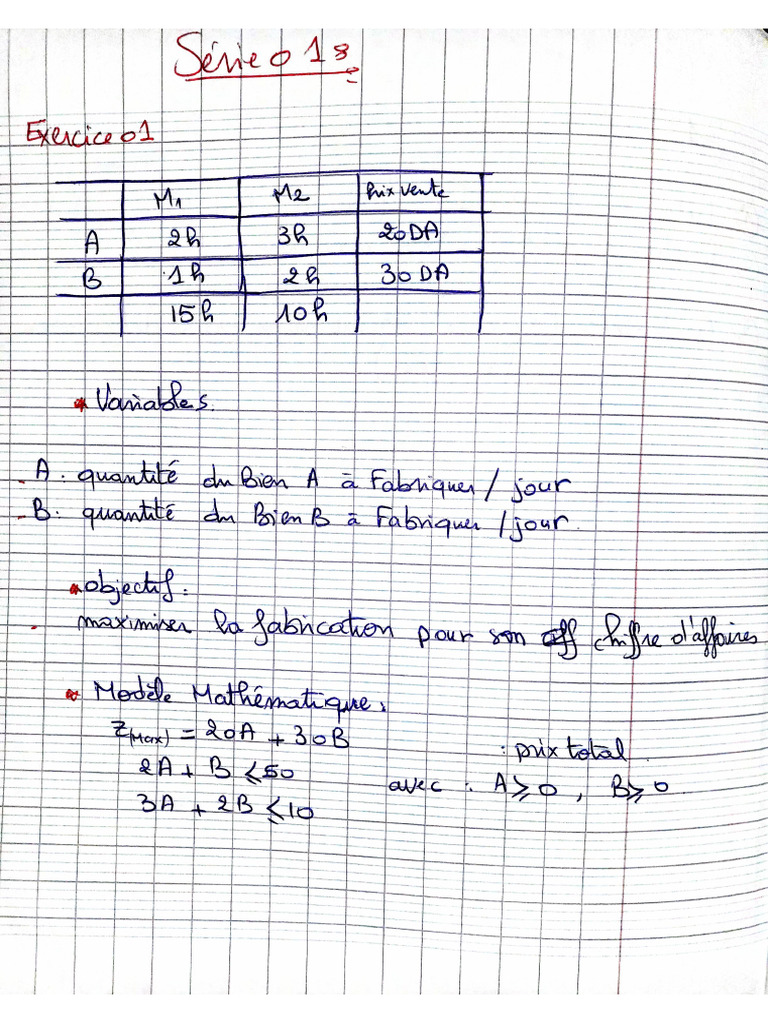 Série 01:
Exercice 01
M1 M2 Prix vente
A 2h 3h 20DA
B 1h 2h 30DA
15h 10h
* Variables.
- A: quantité du Bien A à Fabriquer / jour
- B: quantité du Bien B à Fabriquer / jour.
* objectif:
- maximiser la fabrication pour son chiffre d'affaires
* Modèle Mathématique:
Z(Max) = 20A + 30B : prix total
2A + B ≤ 50
avec : A ≥ 0 , B ≥ 0
3A + 2B ≤ 10